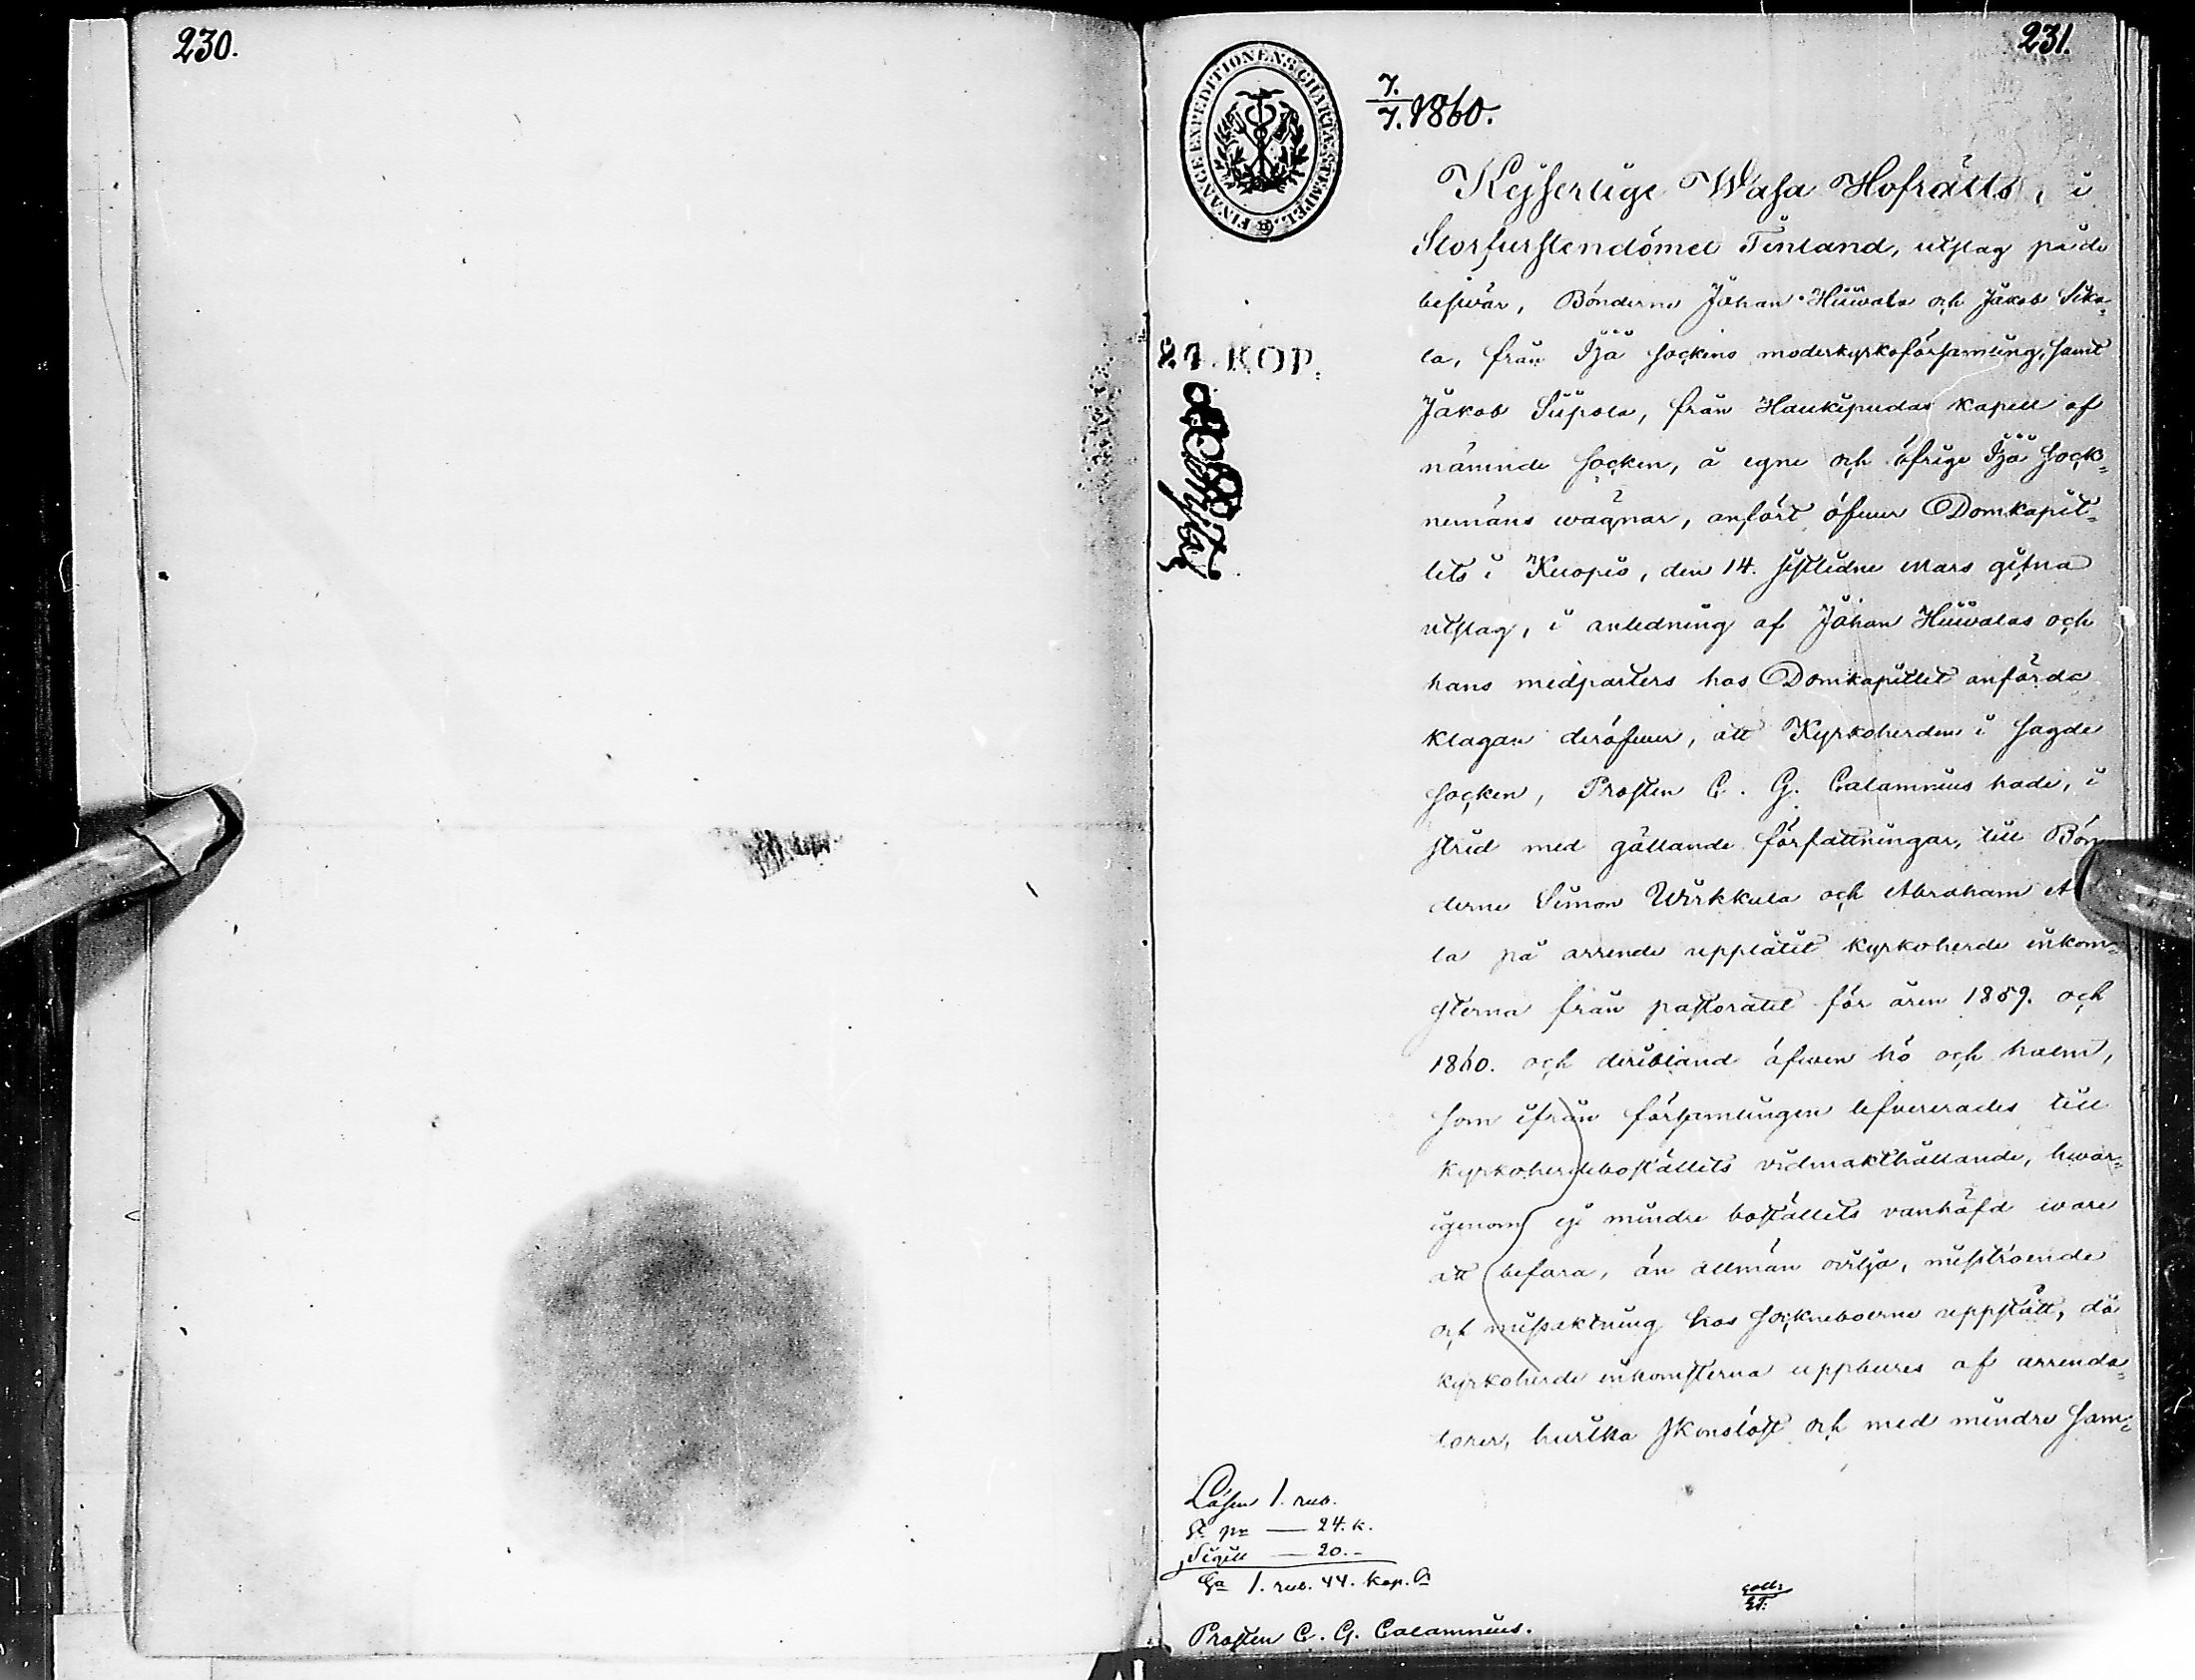 230.
231.
FINANCE EXPEDITIONENS CHARTÆ STEMPEL.
7./7. 1860.
Kejserlige Wasa Hofrätts, i
Storfurstendömet Finland, utslag på de
besvär, Bönderne Johan Hiivala och Jakob Sika-
la, från Ijå sockens moderkyrkoförsamling, samt
24. KOP.
Jakob Siipola, från Haukipudas kapell af
nämnde socken, å egne och öfrige Ijå sock-
nemäns wägnar, anfört öfwer Domkapit-
lets i Kuopio, den 14. sistlidne Mars gifna
utslag, i anledning af Johan Hiivalas och
hans medparters hos Domkapitlet anförda
klagan deröfwer, att Kyrkoherden i sagde
socken, Prosten C. G. Calamnius hade, i
strid med gällande författningar, till Bön-
derne Simon Wirkkula och Abraham
la på arrende upplåtit kyrkoherde inkom-
sterna från pastoratet för åren 1859. och
1860. och deribland äfwen hö och halm,
som ifrån församlingen lefvererades till
kyrkoherdeboställets vidmakthållande, hwar-
igenom ej mindre boställets vanhäfd wore
att befara, än allmän ovilja, misstroende
och missaktning hos sockneboerne uppstått, då
kyrkoherde inkomsterna uppbures af arrenda-
torer, hvilka skonslöst och med mindre sam-
Lösen 1. rub.
St. pr — 24. k.
Sigill — 20. -
Sa 1. rub. 44. kop. Sr
Prosten C. G. Calamnius.